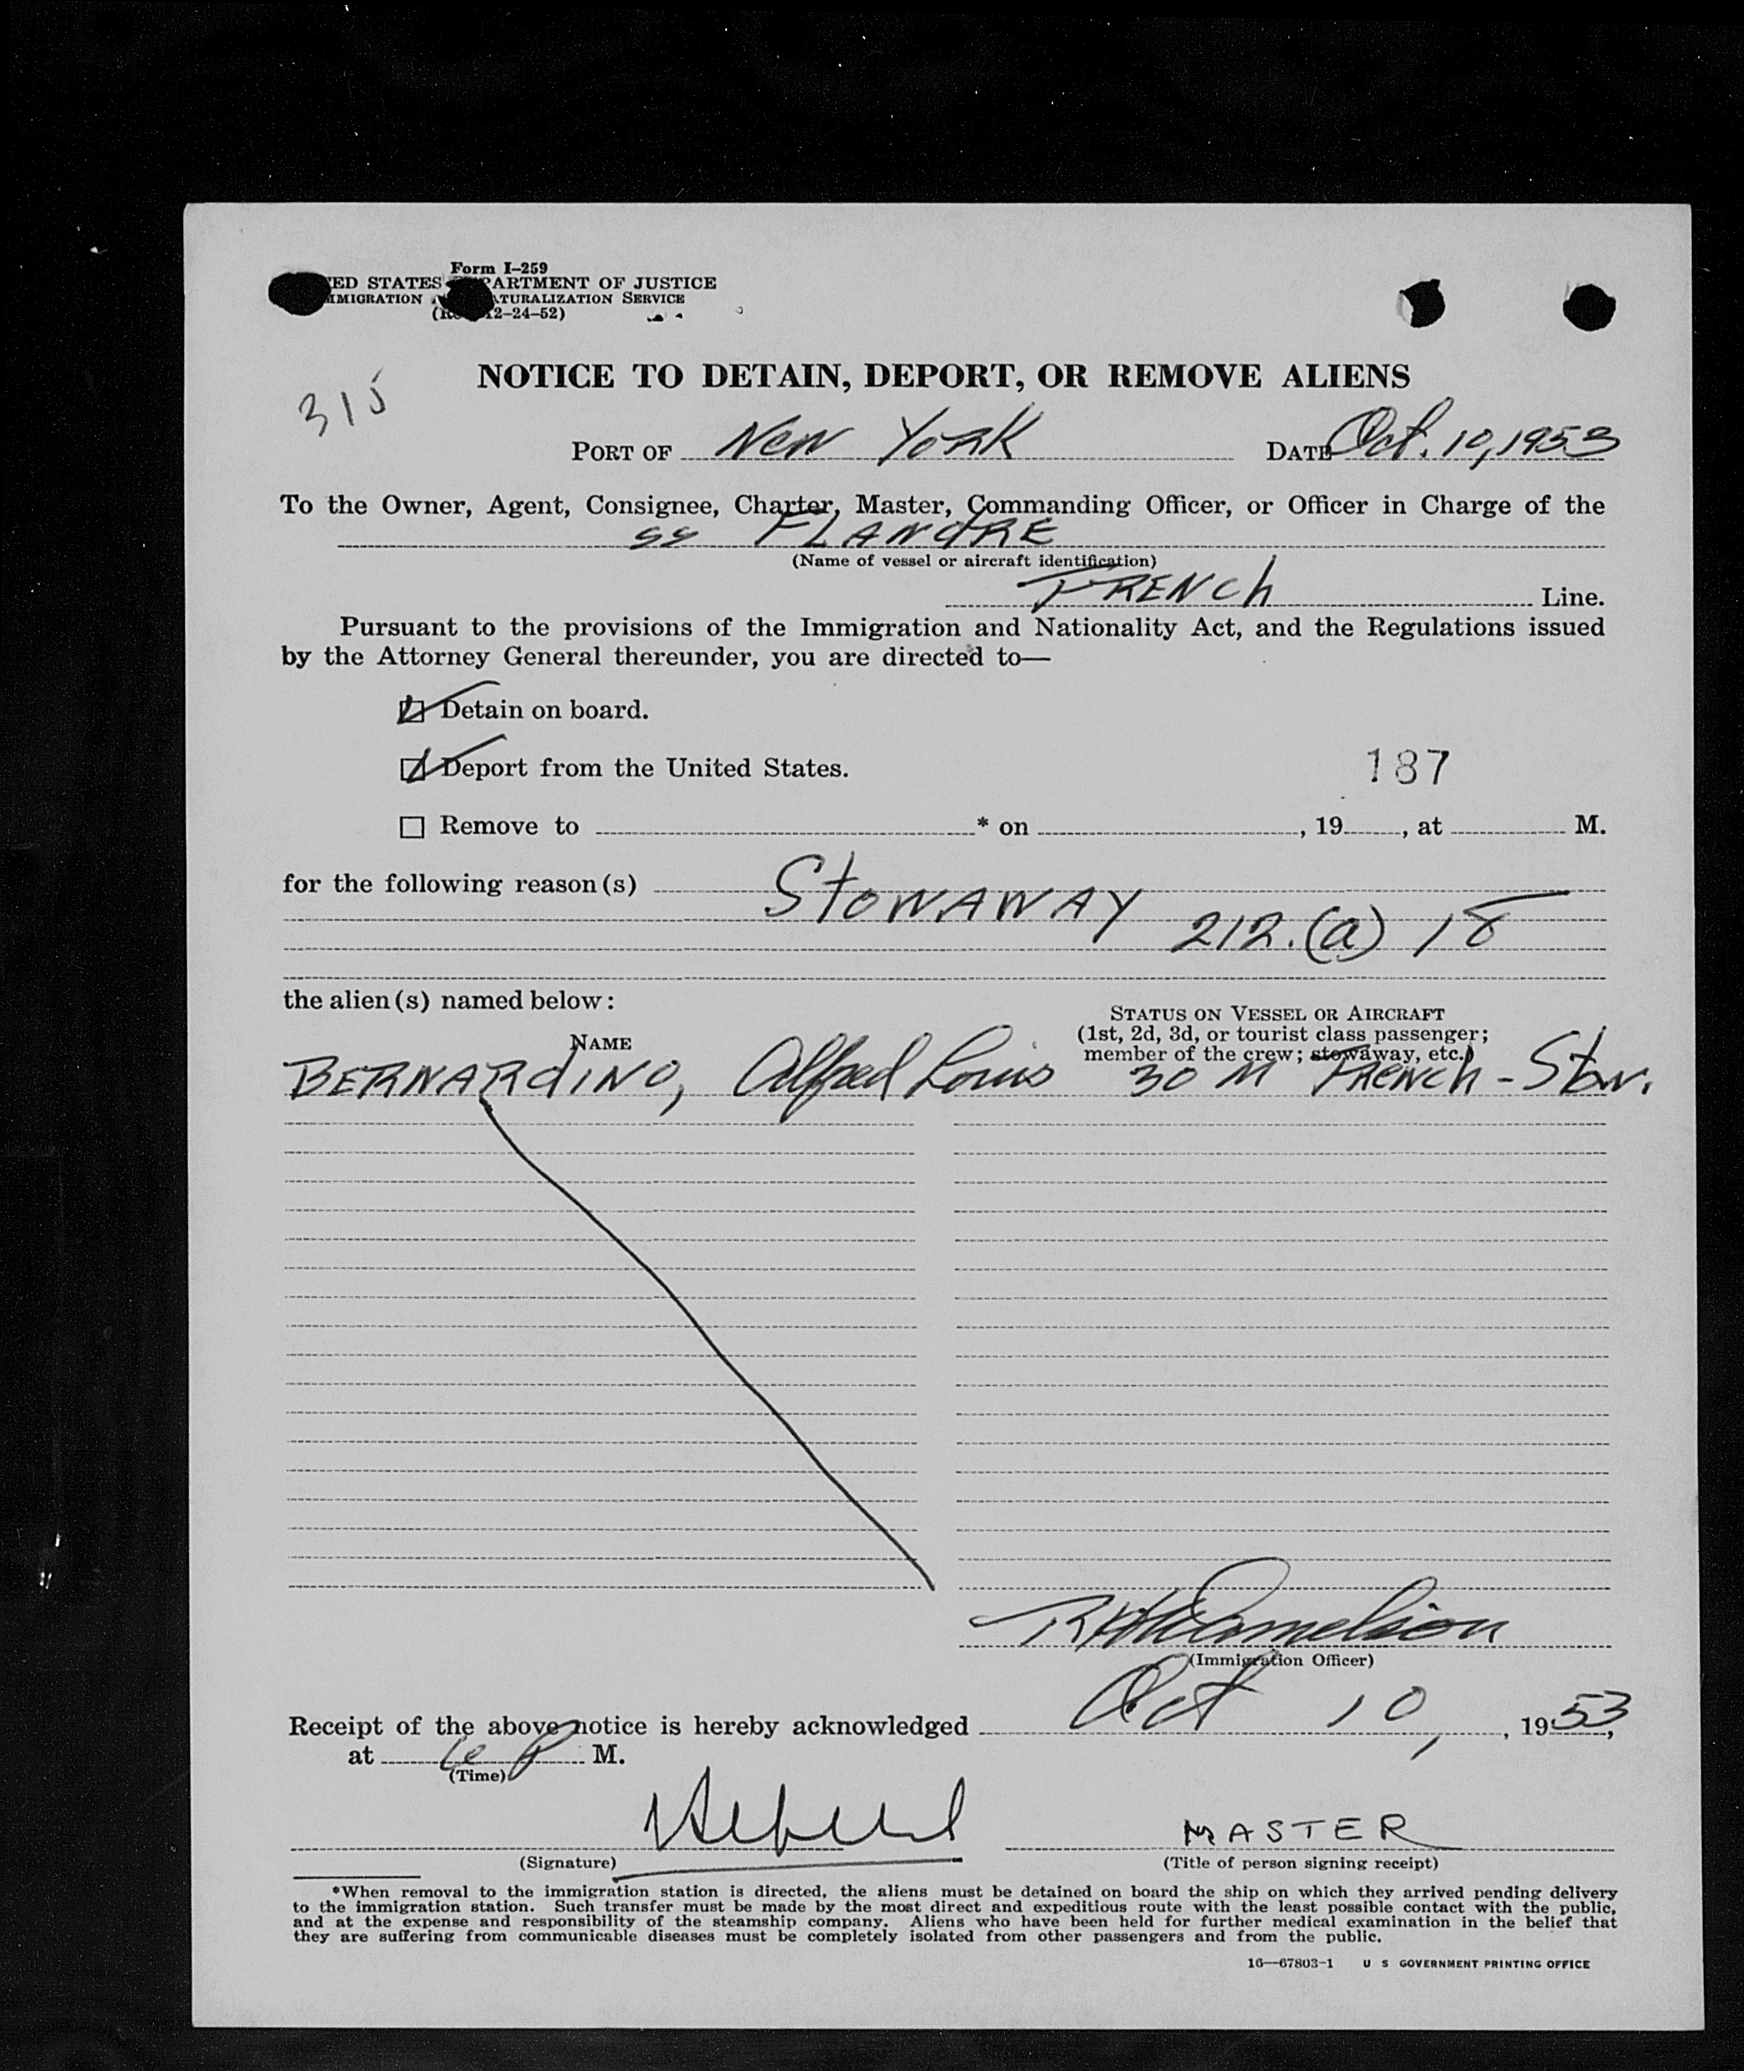 Form I-259
ED STATES PARTMENT OF JUSTICE
MMIGRATION TURALIZATION SERVICE
12-24-52)
315
NOTICE TO DETAIN, DEPORT, OR REMOVE ALIENS
PORT OF New York DATE Oct. 10, 1953
To the Owner, Agent, Consignee, Charter, Master, Commanding Officer, or Officer in Charge of the
SS FLANdRE
(Name of vessel or aircraft identification)
FRENCh Line.
Pursuant to the provisions of the Immigration and Nationality Act, and the Regulations issued
by the Attorney General thereunder, you are directed to—
Detain on board.
Deport from the United States.
187
Remove to * on , 19 , at M.
for the following reason(s) StOWAWAY
212.(a) 18
the alien(s) named below:
STATUS ON VESSEL OR AIRCRAFT
(1st, 2d, 3d, or tourist class passenger;
NAME member of the crew; stowaway, etc.)
BERNARdINO, Alfred Louis 30 M FRENCh - Stow.
(Immigration Officer)
Receipt of the above notice is hereby acknowledged Oct 10, , 1953,
at 6 P M.
(Time)
MASTER
(Signature) (Title of person signing receipt)
*When removal to the immigration station is directed, the aliens must be detained on board the ship on which they arrived pending delivery
to the immigration station. Such transfer must be made by the most direct and expeditious route with the least possible contact with the public,
and at the expense and responsibility of the steamship company. Aliens who have been held for further medical examination in the belief that
they are suffering from communicable diseases must be completely isolated from other passengers and from the public.
16—67803-1 U S GOVERNMENT PRINTING OFFICE